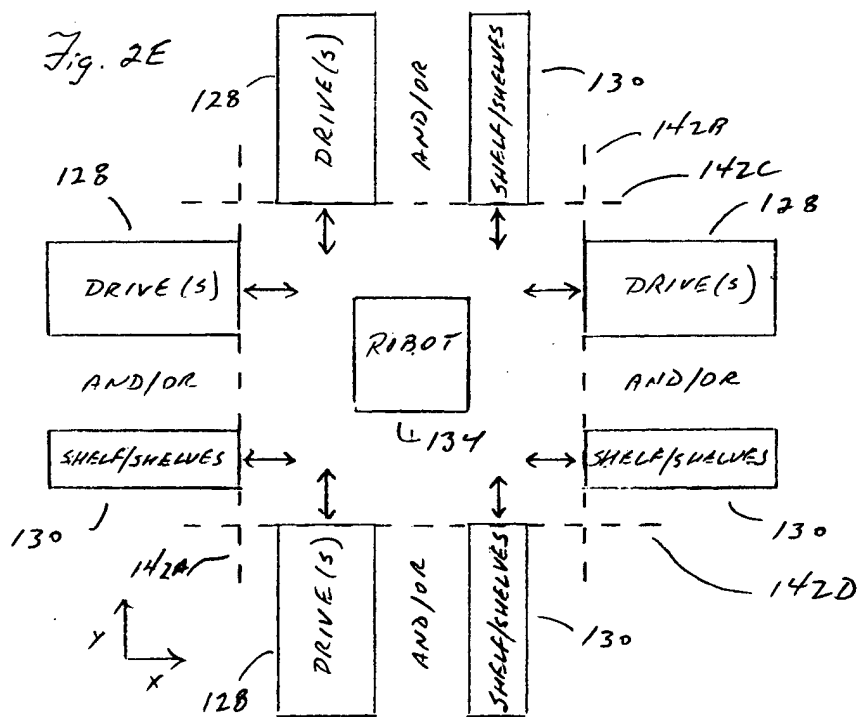 Fig. 2E
128
DRIVE(S)
AND/OR
SHELF/SHELVES
130
142B
142C
128
128
DRIVE(S)
DRIVE(S)
ROBOT
AND/OR
AND/OR
134
SHELF/SHELVES
SHELF/SHELVES
130
130
142A
142D
DRIVE(S)
AND/OR
SHELF/SHELVES
130
Y
X
128